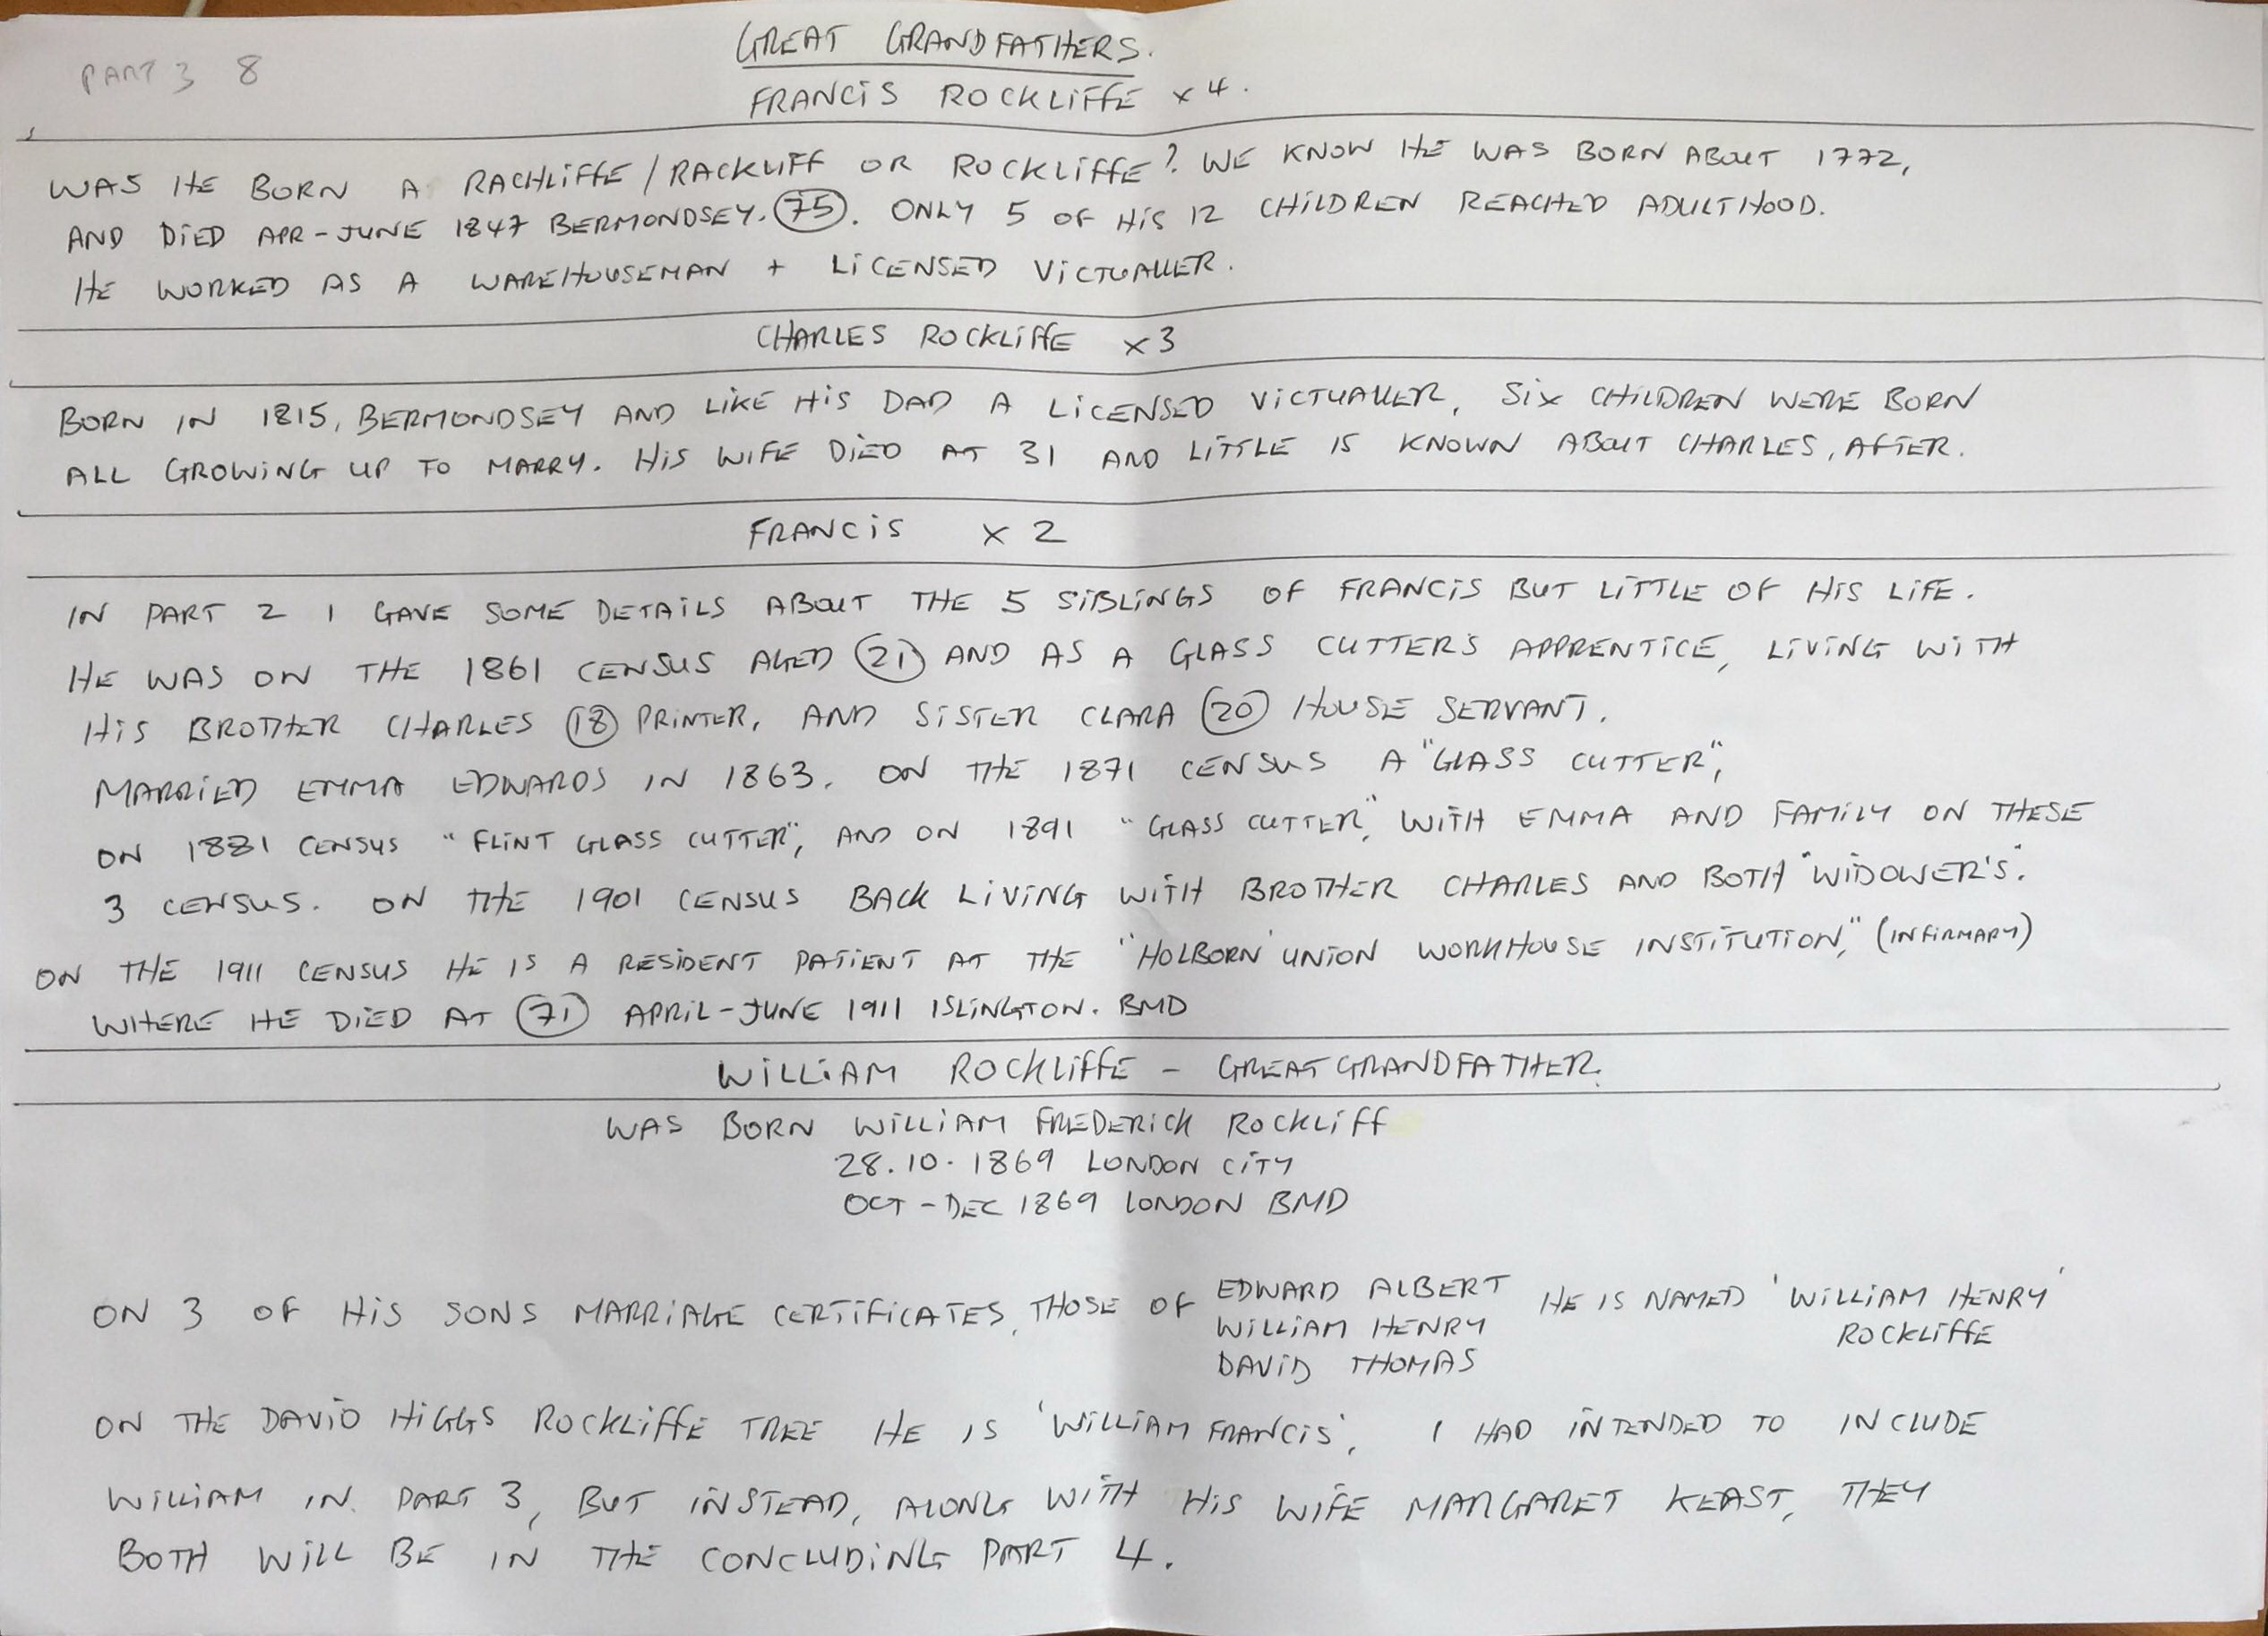 PART 3 8
GREAT GRANDFATHERS.
FRANCIS ROCKLIFFE x 4.
WAS HE BORN A RACHLIFFE / RACKLIFF OR ROCKLIFFE? WE KNOW HE WAS BORN ABOUT 1772,
AND DIED APR - JUNE 1847 BERMONDSEY. 75. ONLY 5 OF HIS 12 CHILDREN REACHED ADULTHOOD.
HE WORKED AS A WAREHOUSEMAN + LICENSED VICTUALLER.
CHARLES ROCKLIFFE x 3
BORN IN 1815, BERMONDSEY AND LIKE HIS DAD A LICENSED VICTUALLER, SIX CHILDREN WERE BORN
ALL GROWING UP TO MARRY. HIS WIFE DIED AT 31 AND LITTLE IS KNOWN ABOUT CHARLES, AFTER.
FRANCIS x 2
IN PART 2 I GAVE SOME DETAILS ABOUT THE 5 SIBLINGS OF FRANCIS BUT LITTLE OF HIS LIFE.
HE WAS ON THE 1861 CENSUS AGED 21 AND AS A GLASS CUTTER'S APPRENTICE, LIVING WITH
HIS BROTHER CHARLES 18 PRINTER, AND SISTER CLARA 20 HOUSE SERVANT.
MARRIED EMMA EDWARDS IN 1863. ON THE 1871 CENSUS A "GLASS CUTTER",
ON 1881 CENSUS "FLINT GLASS CUTTER", AND ON 1891 "GLASS CUTTER", WITH EMMA AND FAMILY ON THESE
3 CENSUS. ON THE 1901 CENSUS BACK LIVING WITH BROTHER CHARLES AND BOTH "WIDOWER'S".
ON THE 1911 CENSUS HE IS A RESIDENT PATIENT AT THE "HOLBORN UNION WORKHOUSE INSTITUTION," (INFIRMARY)
WHERE HE DIED AT 71 APRIL - JUNE 1911 ISLINGTON. BMD
WILLIAM ROCKLIFFE - GREAT GRANDFATHER.
WAS BORN WILLIAM FREDERICK ROCKLIFF
28.10.1869 LONDON CITY
OCT - DEC 1869 LONDON BMD
ON 3 OF HIS SONS MARRIAGE CERTIFICATES, THOSE OF EDWARD ALBERT HE IS NAMED 'WILLIAM HENRY'
WILLIAM HENRY ROCKLIFFE
DAVID THOMAS
ON THE DAVID HIGGS ROCKLIFFE TREE HE IS 'WILLIAM FRANCIS'. I HAD INTENDED TO INCLUDE
WILLIAM IN PART 3, BUT INSTEAD, ALONG WITH HIS WIFE MARGARET KEAST, THEY
BOTH WILL BE IN THE CONCLUDING PART 4.